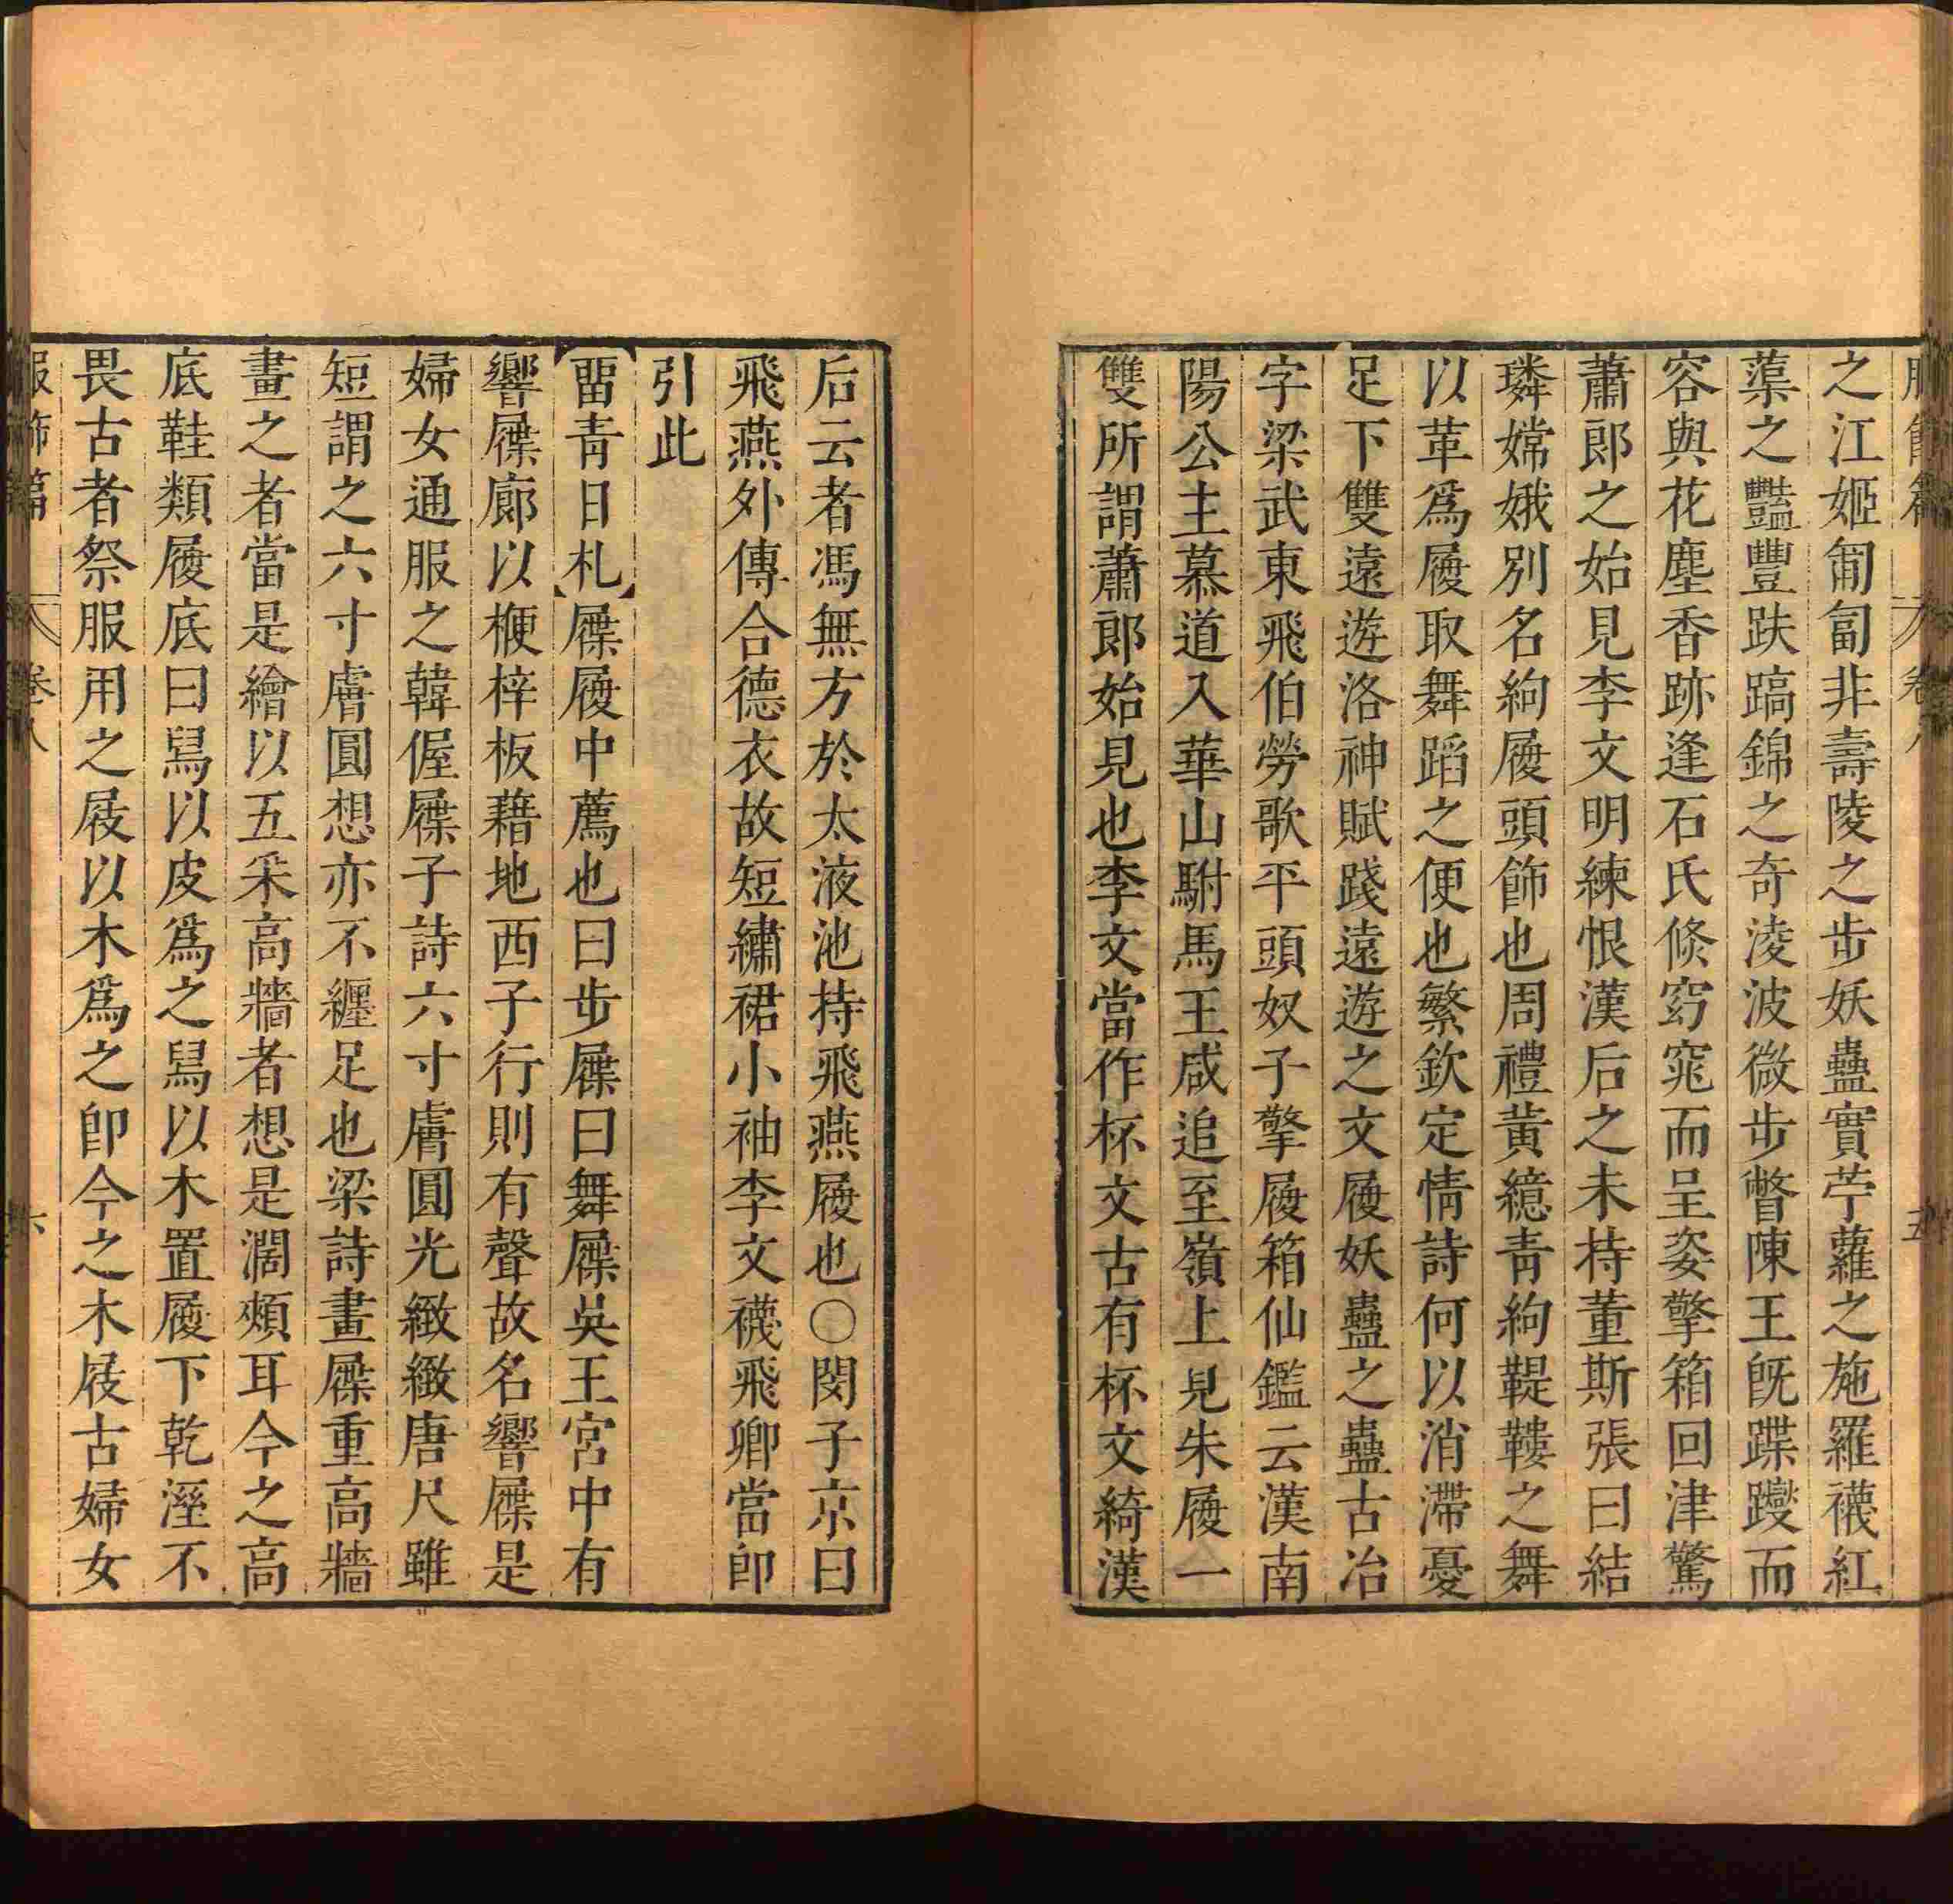 服飾篇 卷八 五
之江姬匍匐非壽陵之步妖蠱實苧蘿之施羅襪紅
蕖之豔豐趺蹻錦之奇淩波微步瞥陳王旣蹀躞而
容與花塵香跡逢石氏倏窈窕而呈姿擎箱回津驚
蕭郎之始見李文明練恨漢后之未持董斯張曰結
璘嫦娥別名絇履頭飾也周禮黃繶青絇鞮鞻之舞
以革爲履取舞蹈之便也繁欽定情詩何以消滯憂
足下雙遠遊洛神賦踐遠遊之文履妖蠱之蠱古冶
字梁武東飛伯勞歌平頭奴子擎履箱仙鑑云漢南
陽公主慕道入華山駙馬王咸追至嶺上見朱履一
雙所謂蕭郎始見也李文當作杯文古有杯文綺漢
后云者馮無方於太液池持飛燕履也〇閔子京曰
飛燕外傳合德衣故短繡裙小袖李文襪飛卿當卽
引此
【畱青日札】屧履中薦也曰步屧曰舞屧吳王宮中有
響屧廊以楩梓板藉地西子行則有聲故名響屧是
婦女通服之韓偓屧子詩六寸膚圓光緻緻唐尺雖
短謂之六寸膚圓想亦不纏足也梁詩畫屧重高牆
畫之者當是繪以五采高牆者想是濶頰耳今之高
底鞋類履底曰舄以皮爲之舄以木置履下乾溼不
畏古者祭服用之屐以木爲之卽今之木屐古婦女
服飾篇 卷八 六